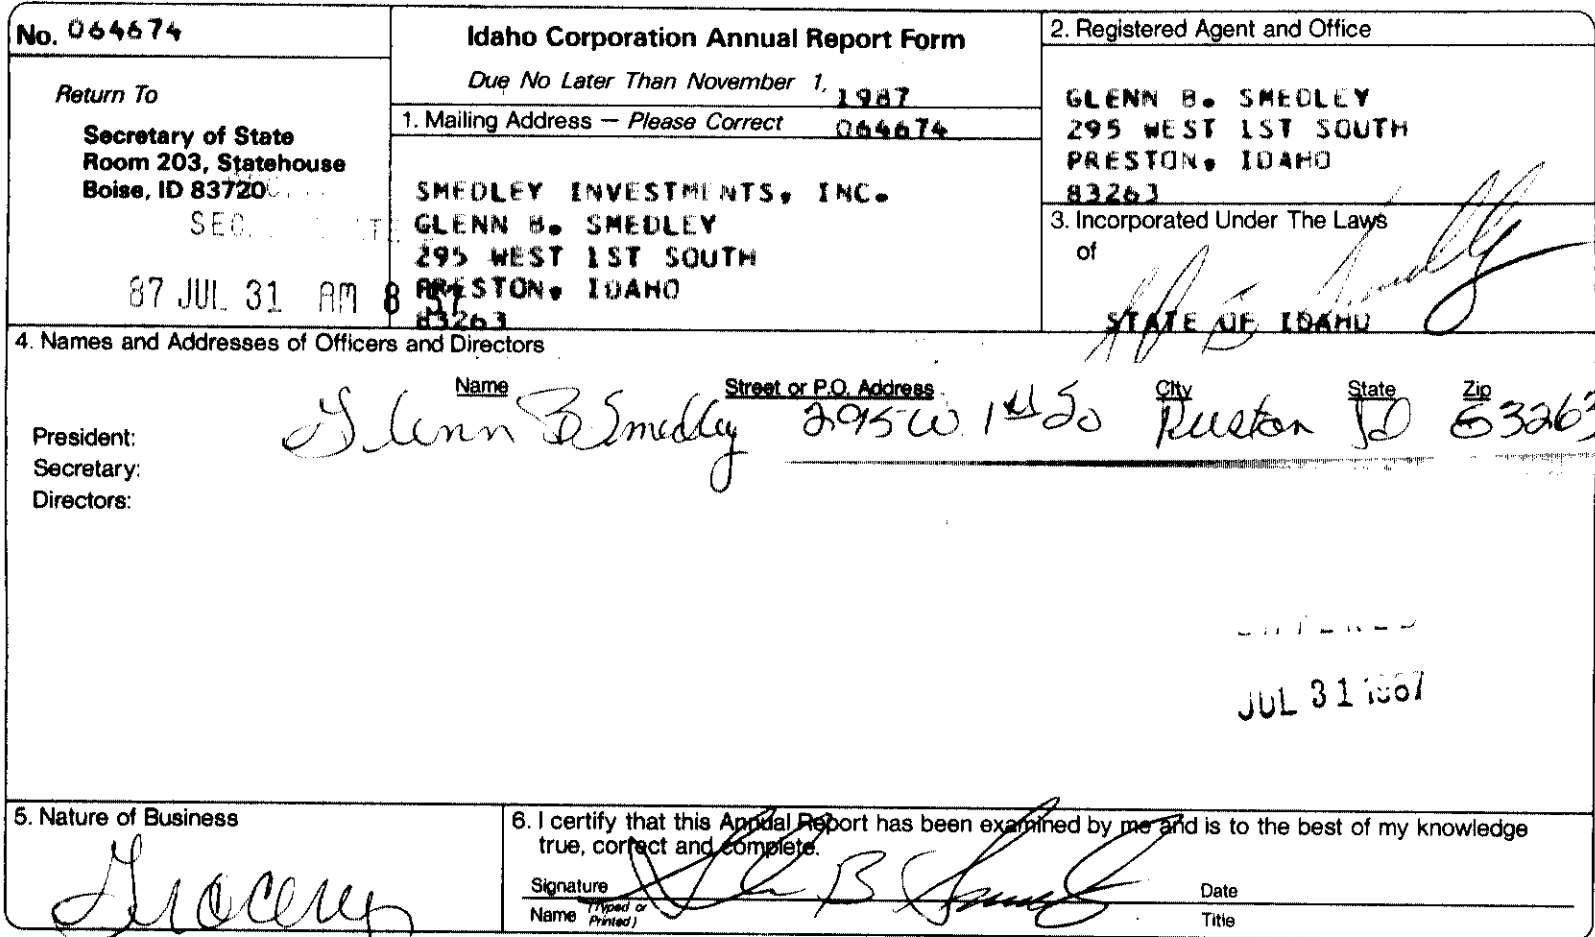 No. 064674
Return To
Secretary of State
Room 203, Statehouse
Boise, ID 83720
SEC.
87 JUL 31 AM 8
Idaho Corporation Annual Report Form
Due No Later Than November 1, 1987
1. Mailing Address — Please Correct 064674
SMEDLEY INVESTMENTS, INC.
GLENN B. SMEDLEY
295 WEST 1ST SOUTH
PRESTON, IDAHO
83263
2. Registered Agent and Office
GLENN B. SMEDLEY
295 WEST 1ST SOUTH
PRESTON, IDAHO
83263
3. Incorporated Under The Laws
of
STATE OF IDAHO
4. Names and Addresses of Officers and Directors
Name Street or P.O. Address City State Zip
President: Glenn B Smedley 295 W. 1st So Preston ID 83263
Secretary:
Directors:
JUL 31
5. Nature of Business
Grocery
6. I certify that this Annual Report has been examined by me and is to the best of my knowledge
true, correct and complete.
Signature Date
Name (Typed or Printed) Title